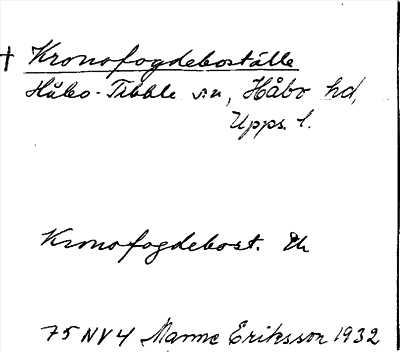 † Kronofogdeboställe
Håbo-Tibble sn, Håbo hd,
Upps. l.
Kronofogdebost. Ek
75 NV 4 Manne Eriksson 1932